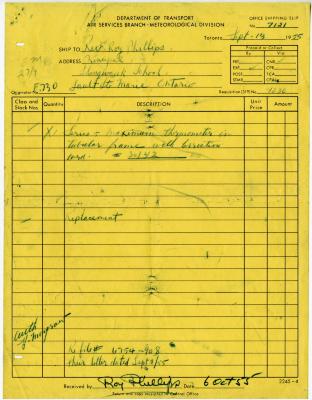 DEPARTMENT OF TRANSPORT
AIR SERVICES BRANCH - METEOROLOGICAL DIVISION
OFFICE SHIPPING SLIP
No 7121
Toronto, Sept. 13 1955
SHIP TO Rev. Roy Phillips,
ADDRESS Principal
Shingwauk School
Sault Ste Marie Ontario
Prepaid or Collect
By Via
FRT. CNR
EXP. CPR
POST. TCA
CTAGE
Requisition (319) No.
Class and Stock Nos.
Quantity
DESCRIPTION
Unit Price
Amount
X1 Series maximum thermometer in
tubular frame with correction
card. # 2142
Replacement
Re file # 6754-908
their letter dated Sept 9/55
Received by Roy Phillips Date 6 Oct 55
Return one copy receipted to Central Office
2245-4